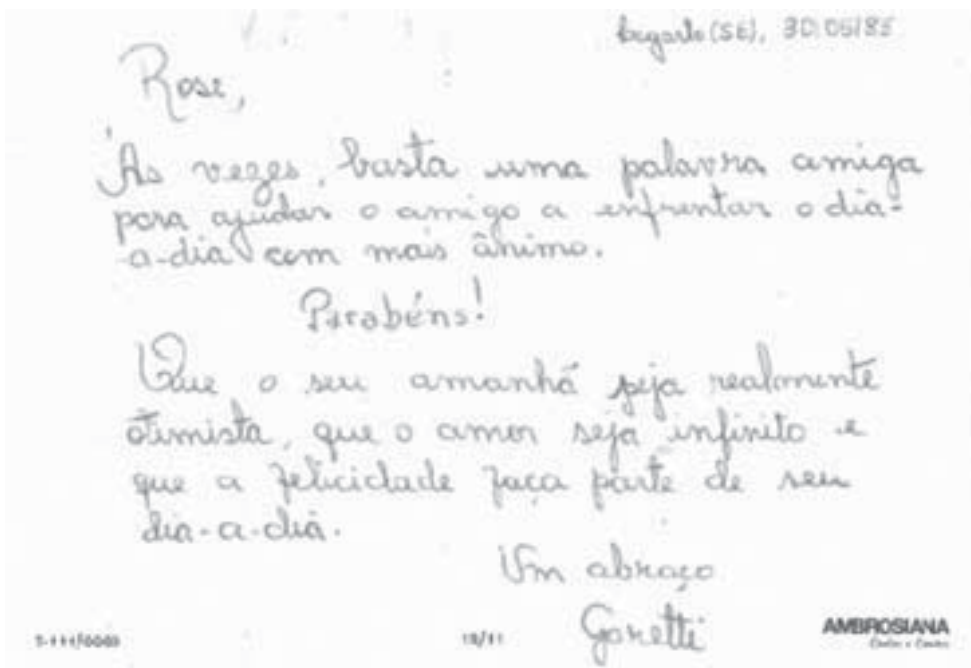 (SE), 30/05/85
Rose,
Às vezes, basta uma palavra amiga
para ajudar o amigo a enfrentar o dia-
a-dia com mais ânimo.
Parabéns!
Que o seu amanhã seja realmente
otimista, que o amor seja infinito e
que a felicidade faça parte de seu
dia-a-dia.
Um abraço
Goretti
AMBROSIANA